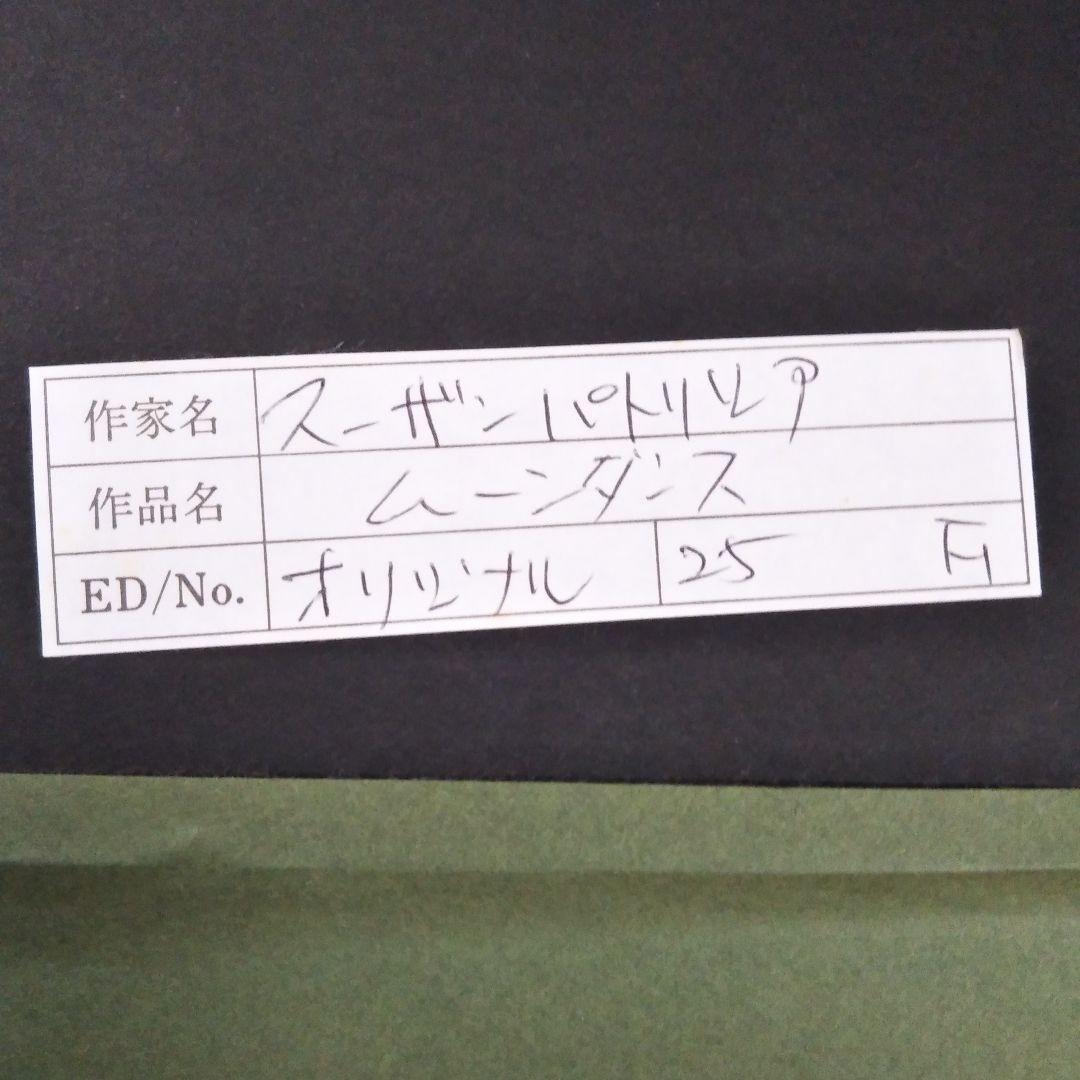 作家名 スーザンパトリシア
作品名 ムーンダンス
ED/No. オリジナル 25